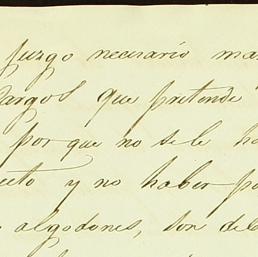 juzgo necesario ma
Cargos que pretende
por que no se le ha
ecto y no haber po
algodones, son del